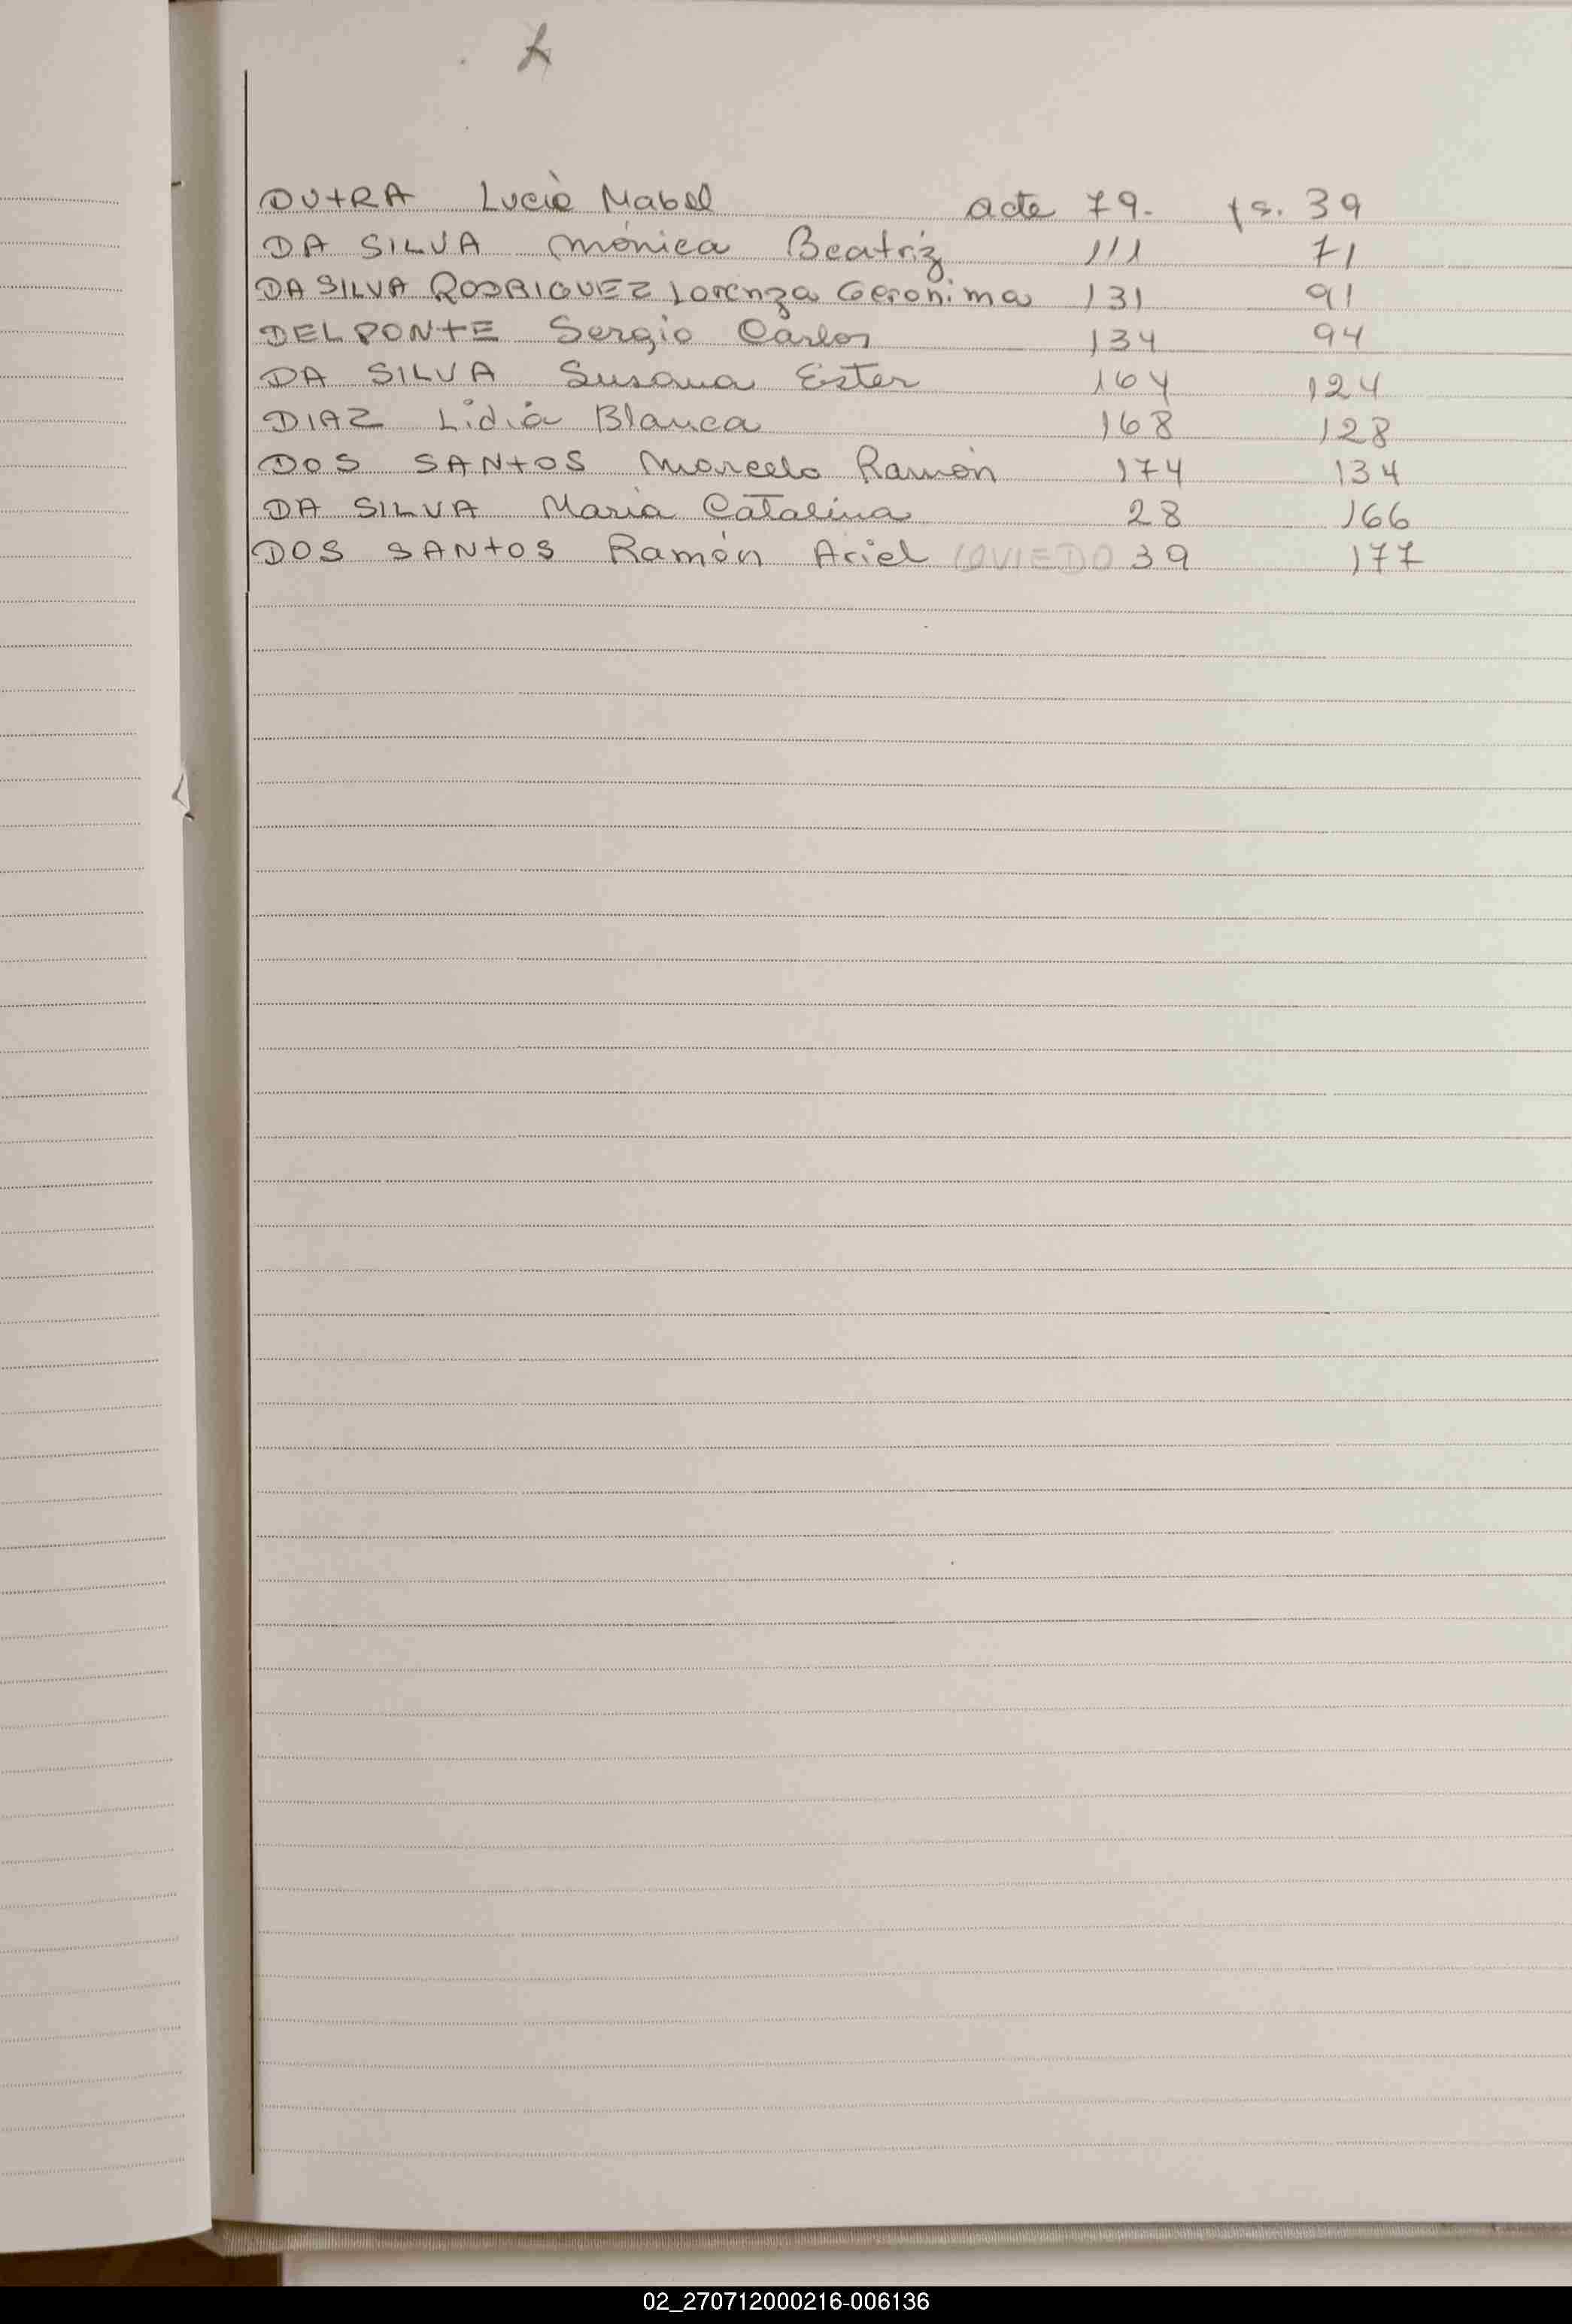 DUTRA Lucía Mabel acta 79. fs. 39
DA SILVA Mónica Beatriz 111 71
DA SILVA RODRIGUEZ Lorenza Geronima 131 91
DELPONTE Sergio Carlos 134 94
DA SILVA Susana Ester 164 124
DIAZ Lidia Blanca 168 128
DOS SANTOS Marcelo Ramón 174 134
DA SILVA María Catalina 28 166
DOS SANTOS Ramón Ariel (OVIEDO 39 177
02_270712000216-006136